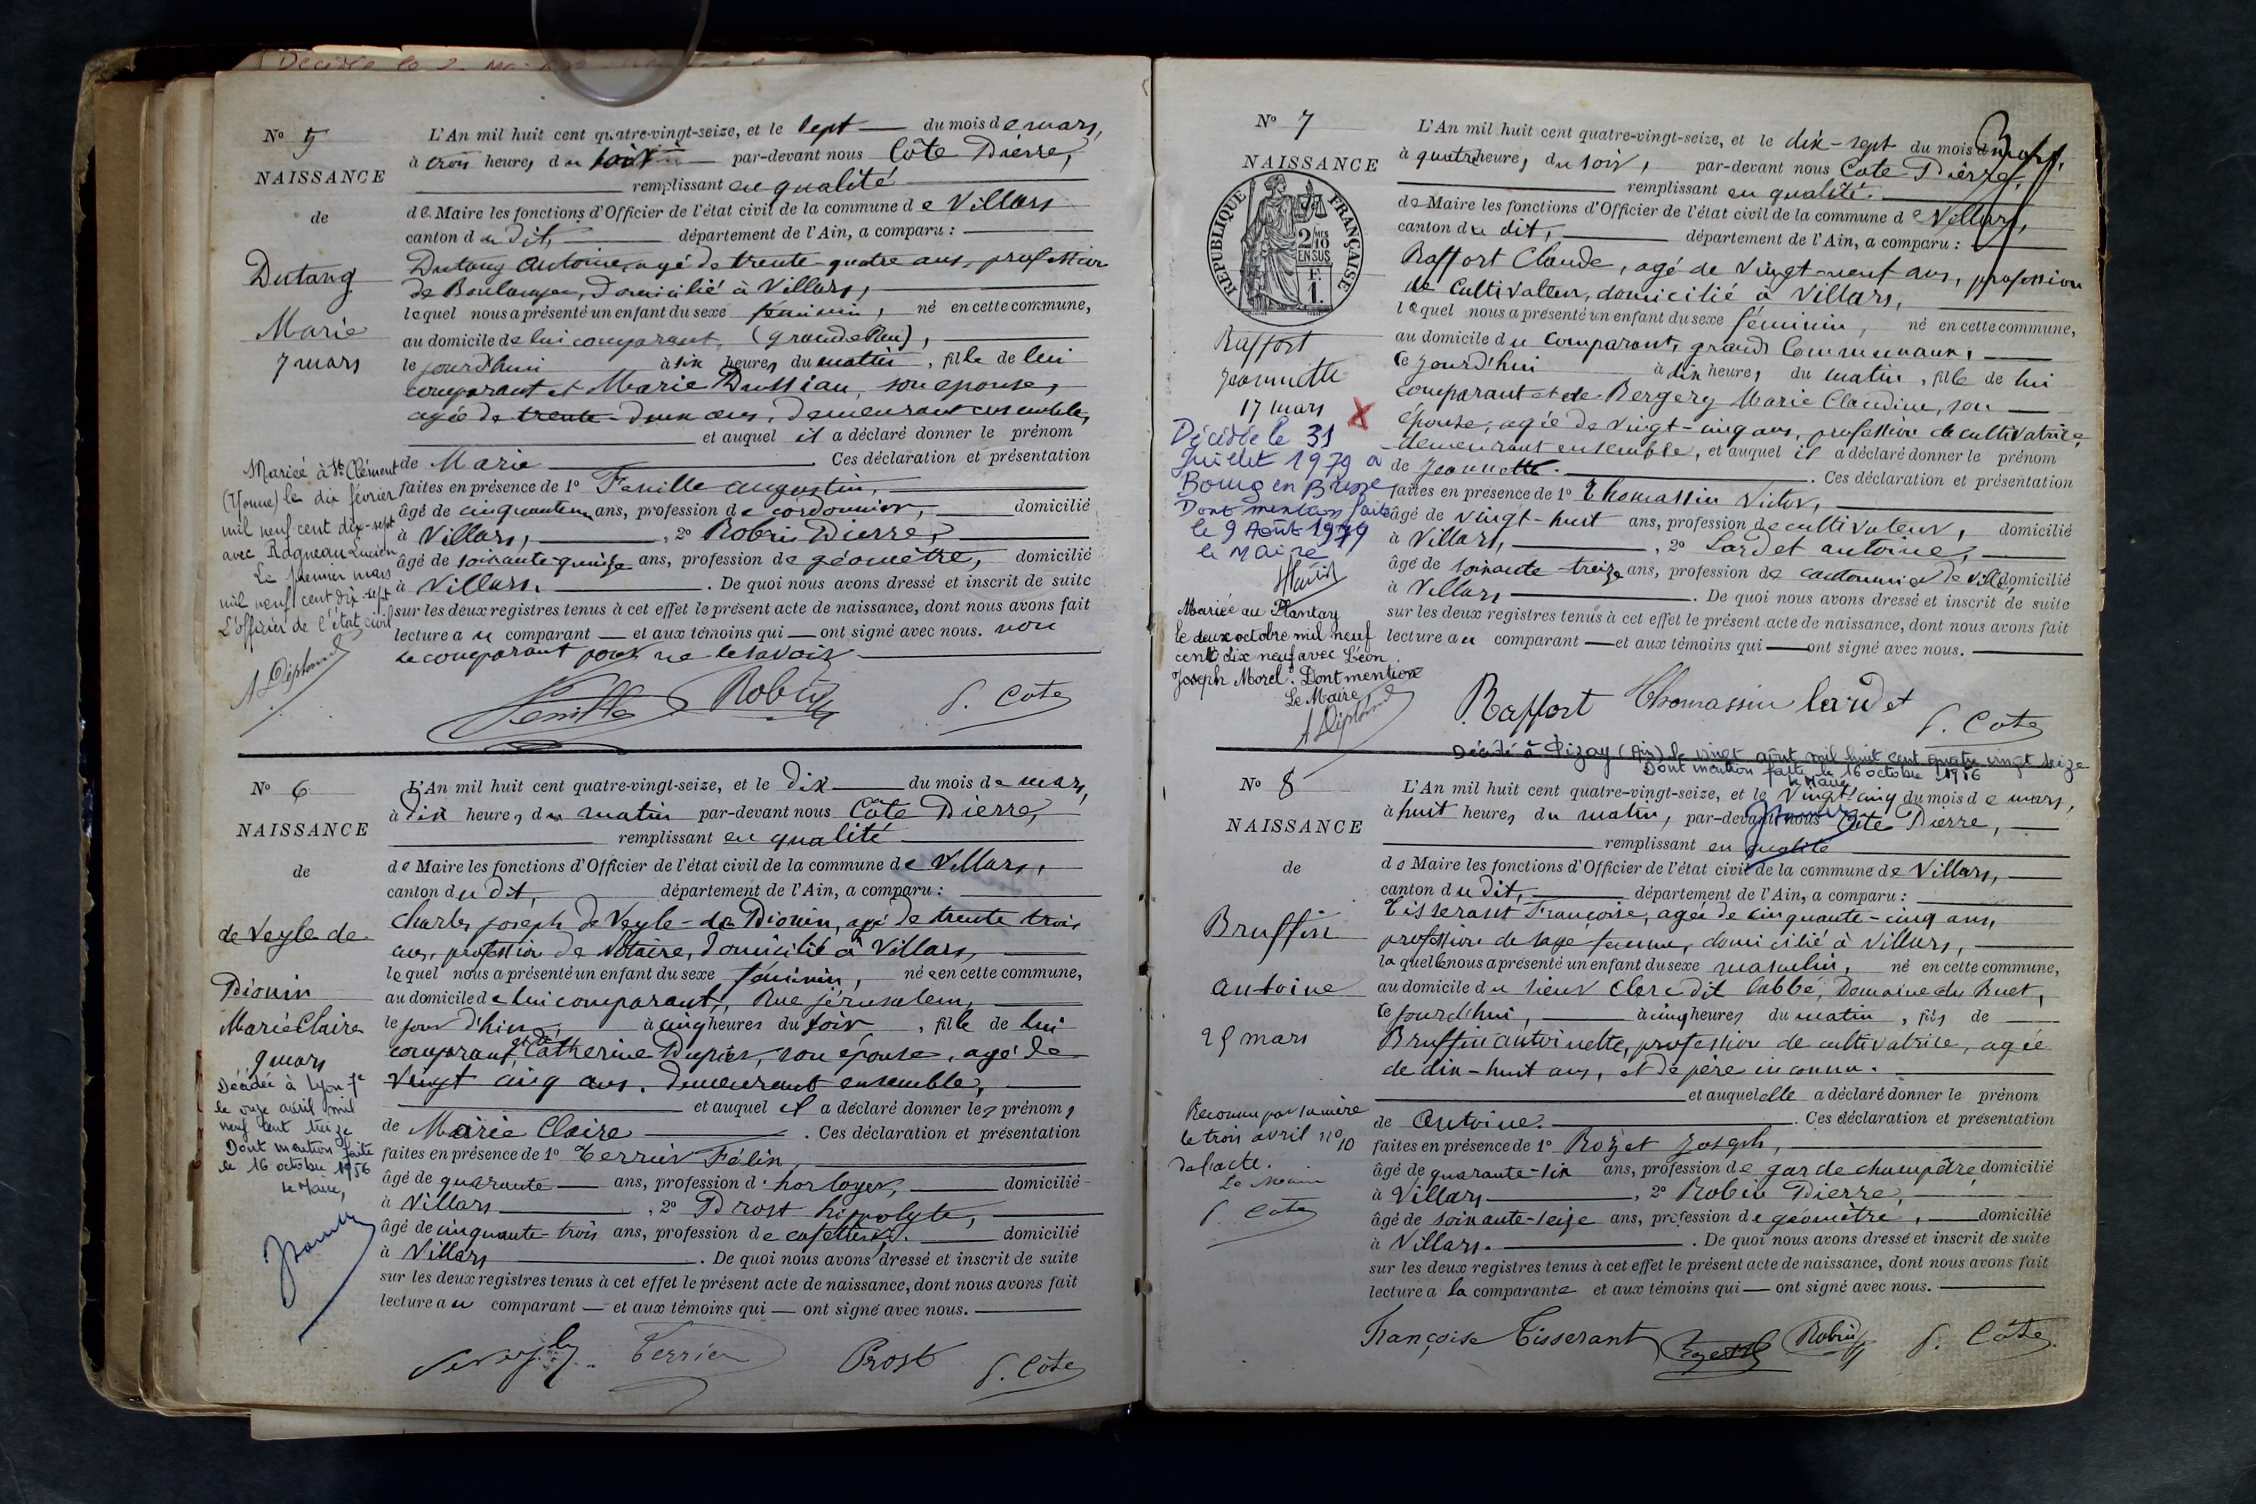 Nº 5
NAISSANCE
de
Dutang
Marie
7 mars
Mariée à St Clément
(Yonne) le dix février
mil neuf cent dix-sept
avec Ragneau Lucien
Le premier mars
mil neuf cent dix-sept
L'officier de l'état civil
L'An mil huit cent quatre-vingt-seize, et le sept du mois de mars,
à trois heures du soir par-devant nous Côte Pierre,
remplissant en qualité
de Maire les fonctions d'Officier de l'état civil de la commune de Villars
canton du dit, département de l'Ain, a comparu :
Dutang Antoine, agé de trente-quatre ans, profession
de Boulanger, domicilié à Villars,
lequel nous a présenté un enfant du sexe féminin, né en cette commune,
au domicile de lui comparant, (grande Rue),
le jourd'hui à six heures du matin, fille de lui
comparant et Marie Dussiau, son épouse,
agée de trente-deux ans, demeurant ensemble,
et auquel il a déclaré donner le prénom
de Marie Ces déclaration et présentation
faites en présence de 1º Fenille Augustin,
âgé de cinquante ans, profession de cordonnier, domicilié
à Villars, , 2º Robin Pierre,
âgé de soixante-quinze ans, profession de géomètre, domicilié
à Villars. . De quoi nous avons dressé et inscrit de suite
sur les deux registres tenus à cet effet le présent acte de naissance, dont nous avons fait
lecture au comparant et aux témoins qui ont signé avec nous. non
le comparant pour ne le savoir
Fenille Robin P. Cote
Nº 6
NAISSANCE
de
de Veyle de
Pionin
Marie Claire
9 mars
Décédée à Lyon 7e
le onze avril mil
neuf cent treize
Dont mention faite
le 16 octobre 1956
Le Maire,
L'An mil huit cent quatre-vingt-seize, et le dix du mois de mars,
à dix heures du matin par-devant nous Côte Pierre,
remplissant en qualité
de Maire les fonctions d'Officier de l'état civil de la commune de Villars,
canton du dit, département de l'Ain, a comparu :
Charles joseph de Veyle-de Pionin, agé de trente trois
ans, profession de Notaire, domicilié à Villars,
lequel nous a présenté un enfant du sexe féminin, née en cette commune,
au domicile de lui comparant, Rue jérusalem,
le jour d'hier, à cinq heures du soir, fille de lui
comparant et de Catherine Dupier, son épouse, agé de
vingt cinq ans, demeurant ensemble,
et auquel il a déclaré donner les prénoms
de Marie Claire . Ces déclaration et présentation
faites en présence de 1º Terrier Félix,
âgé de quarante ans, profession d'horloger, domicilié
à Villars , 2º Prost hippolyte,
âgé de cinquante-trois ans, profession de cafetier. domicilié
à Villars . De quoi nous avons dressé et inscrit de suite
sur les deux registres tenus à cet effet le présent acte de naissance, dont nous avons fait
lecture au comparant et aux témoins qui ont signé avec nous.
Terrier Prost P. Côte
Nº 7
NAISSANCE
RÉPUBLIQUE FRANÇAISE
2 MES
10
EN SUS
F.
1.
Raffort
Jeannette
17 mars
Décédée le 31
Juillet 1979 à
Bourg en Bresse
Dont mention faite
le 9 Août 1979
le Maire
Mariée au Plantay
le deux octobre mil neuf
cent dix neuf avec Léon
Joseph Morel. Dont mention
Le Maire
L'An mil huit cent quatre-vingt-seize, et le dix-sept du mois de mars,
à quatre heures du soir, par-devant nous Cote Pierre,
remplissant en qualité.
de Maire les fonctions d'Officier de l'état civil de la commune de Villars,
canton du dit, département de l'Ain, a comparu :
Raffort Claude, agé de vingt-neuf ans, profession
de cultivateur, domicilié à Villars,
lequel nous a présenté un enfant du sexe féminin, né en cette commune,
au domicile du comparant, grands Communaux,
ce jourd'hui à dix heures du matin, fille de lui
comparant et de Bergery Marie Claudine, son
épouse, agée de vingt-cinq ans, profession de cultivatrice
demeurant ensemble, et auquel il a déclaré donner le prénom
de Jeannette. . Ces déclaration et présentation
faites en présence de 1º Thomassin Victor,
âgé de vingt-huit ans, profession de cultivateur, domicilié
à Villars, , 2º Lardet antoine,
âgé de soixante-treize ans, profession de cantonnier de ville, domicilié
à Villars . De quoi nous avons dressé et inscrit de suite
sur les deux registres tenus à cet effet le présent acte de naissance, dont nous avons fait
lecture au comparant et aux témoins qui ont signé avec nous.
Raffort Thomassin lardet
P. Cote
Décédé à Pizay (Ain) le vingt août mil huit cent quatre vingt seize
Dont mention faite le 16 octobre 1956
le Maire
Nº 8
NAISSANCE
de
Bruffin
antoine
25 mars
Reconnu par sa mère
le trois avril nº 10
de l'acte.
Le Maire
P. Cote
L'An mil huit cent quatre-vingt-seize, et le vingt-cinq du mois de mars,
à huit heures du matin, par-devant nous Côte Pierre,
remplissant en qualité
de Maire les fonctions d'Officier de l'état civil de la commune de Villars,
canton du dit, département de l'Ain, a comparu :
Tisserant Françoise, agée de cinquante-cinq ans,
profession de sage femme, domicilié à Villars,
laquelle nous a présenté un enfant du sexe masculin, né en cette commune,
au domicile du sieur Clerc dit labbé, Domaine du Ruet,
ce jourd'hui, à cinq heures du matin, fils de
Bruffin antoinette, profession de cultivatrice, agée
de dix-huit ans, et de père inconnu.
et auquel elle a déclaré donner le prénom
de Antoine. . Ces déclaration et présentation
faites en présence de 1º Rozet Joseph,
âgé de quarante-six ans, profession de garde champêtre, domicilié
à Villars , 2º Robin Pierre,
âgé de soixante-seize ans, profession de géomètre, domicilié
à Villars. . De quoi nous avons dressé et inscrit de suite
sur les deux registres tenus à cet effet le présent acte de naissance, dont nous avons fait
lecture a la comparante et aux témoins qui ont signé avec nous.
Françoise Tisserant Rozet Robin P. Côte